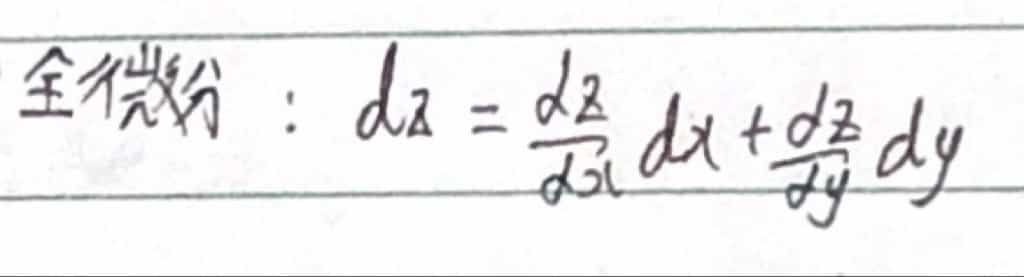 全微分：dz = dz/dx dx + dz/dy dy